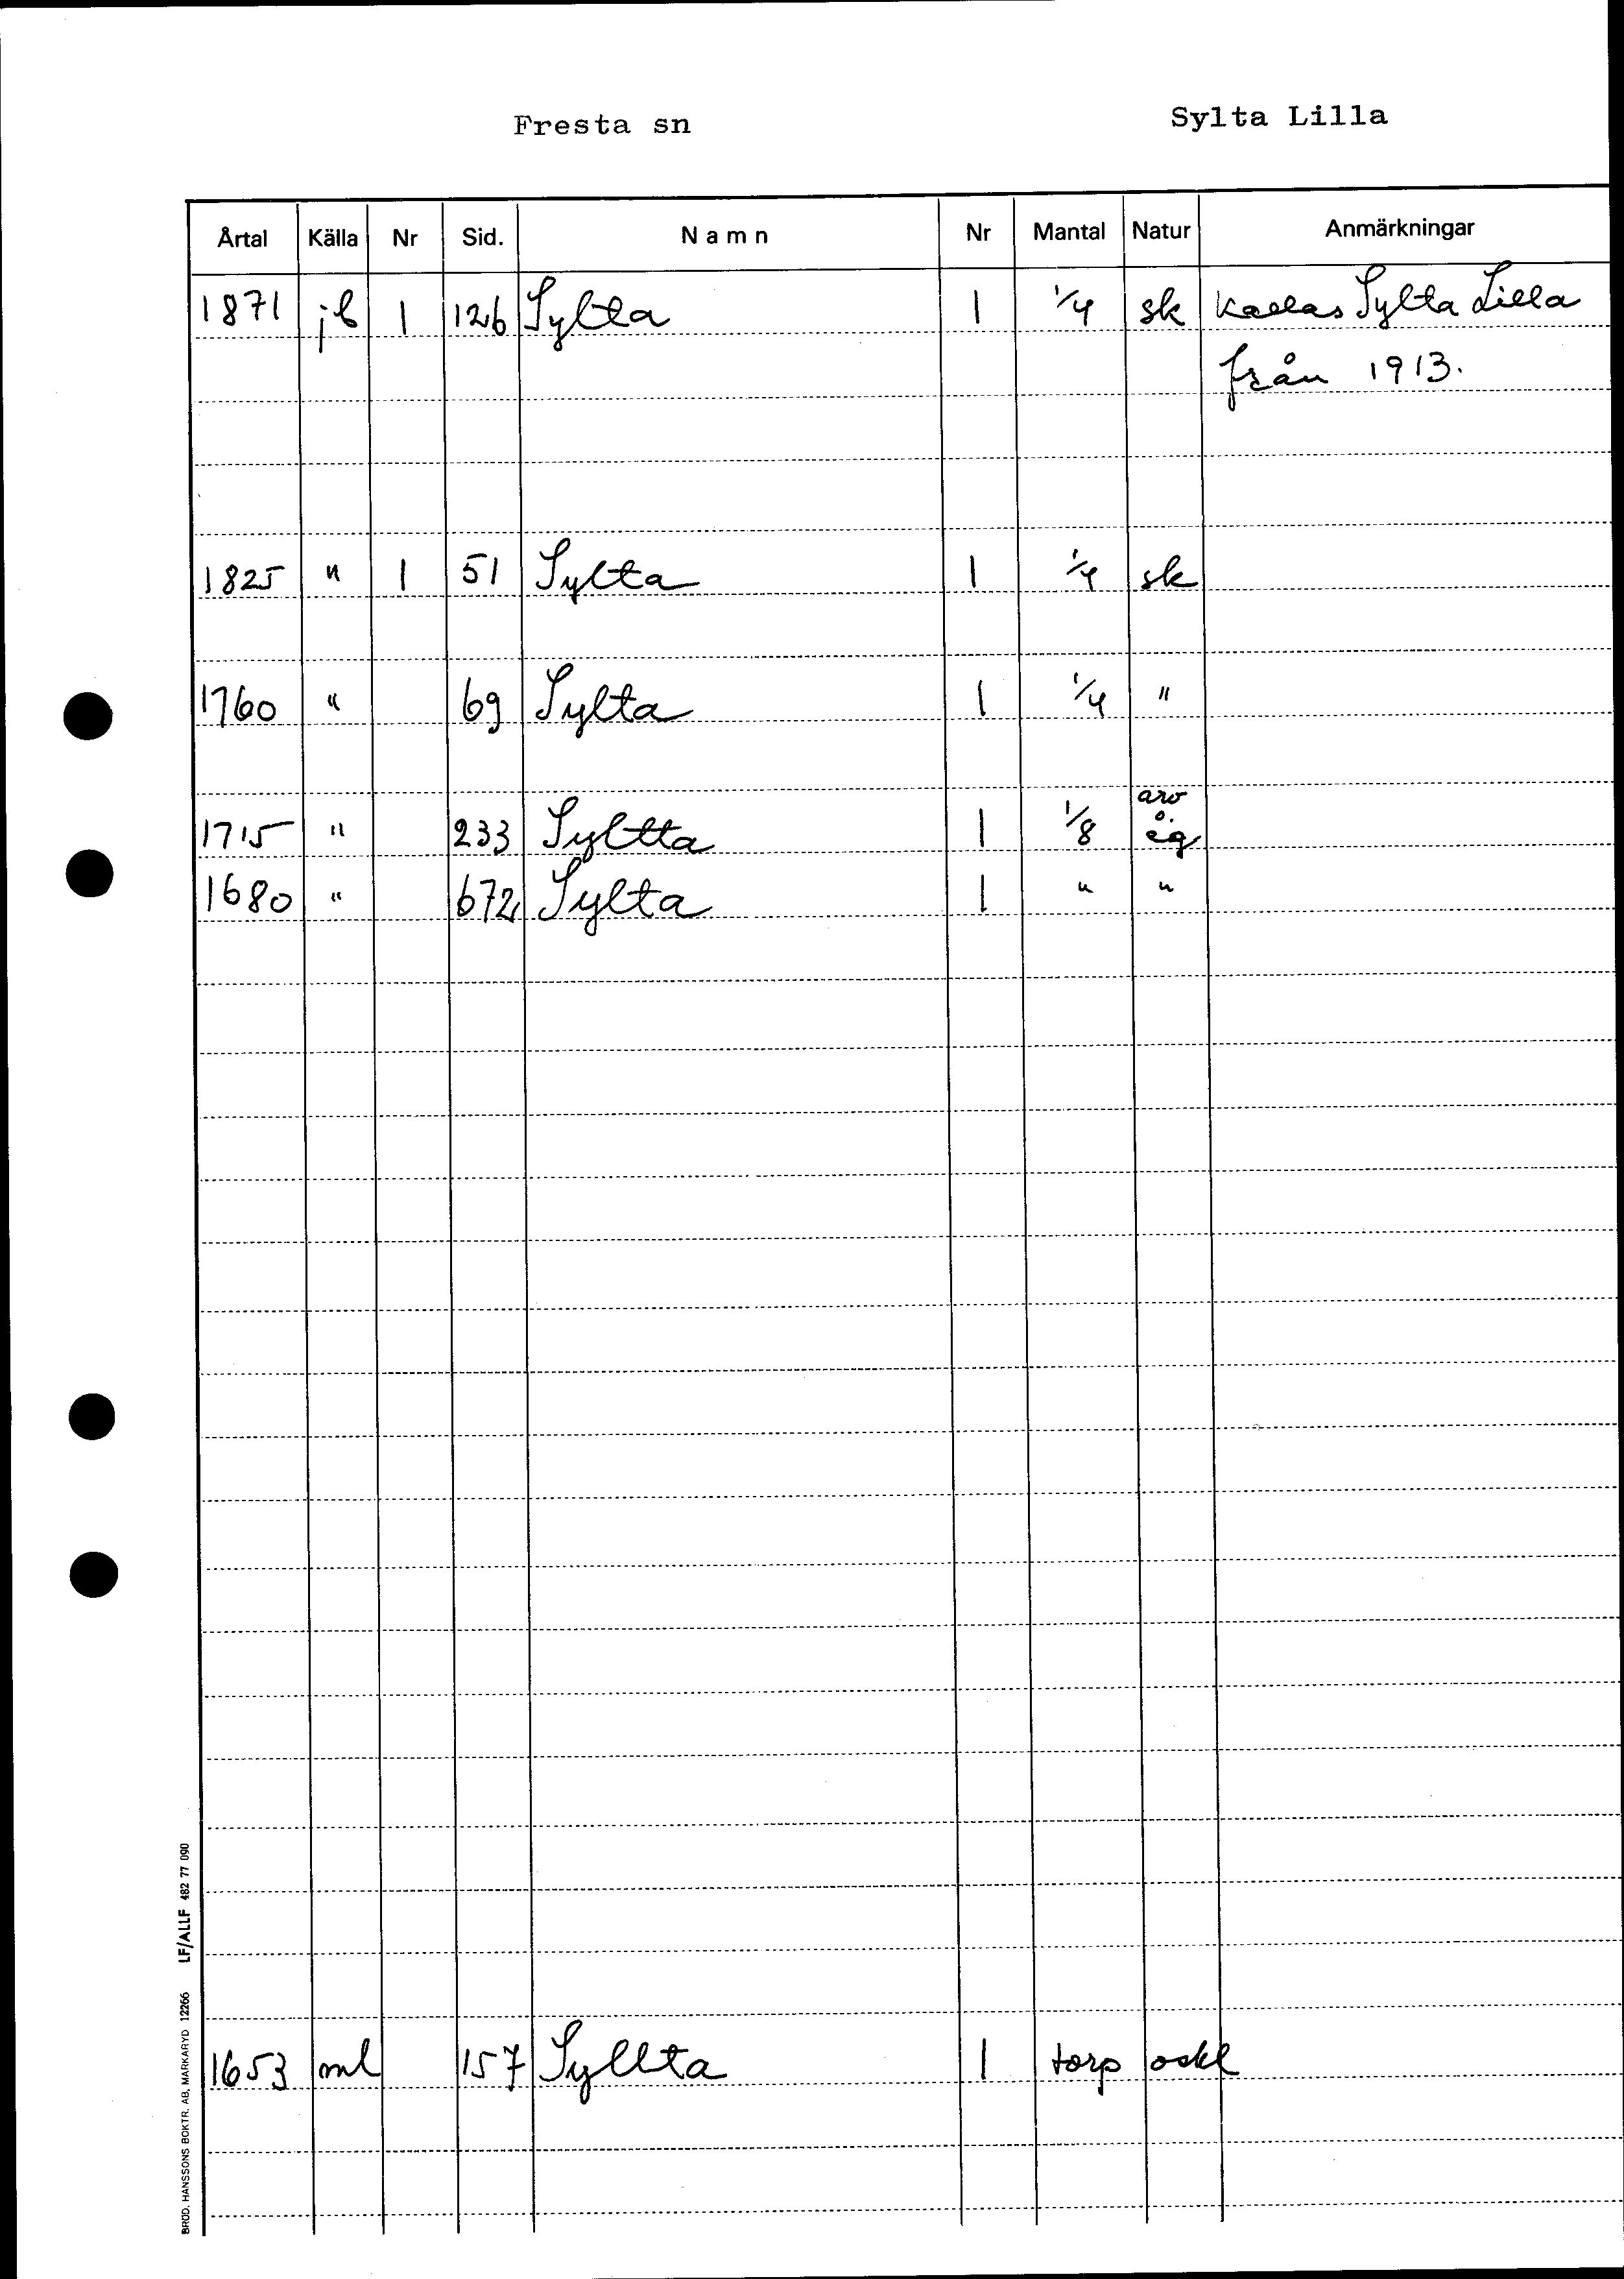 Fresta sn Sylta Lilla
Årtal Källa Nr Sid. Namn Nr Mantal Natur Anmärkningar
1871 jb 1 126 Sylta 1 1/4 sk Kallas Sylta Lilla
från 1913.
1825 " 1 51 Sylta 1 1/4 sk
1760 " 69 Sylta 1 1/4 "
arv
1715 " 233 Syltta 1 1/8 o. eg
1680 " 672 Sylta 1 " "
1653 ml 157 Syllta 1 torp oskl
BROD. HANSSONS BOKTR. AB, MARKARYD 12266 LF/ALLF 482 77 090